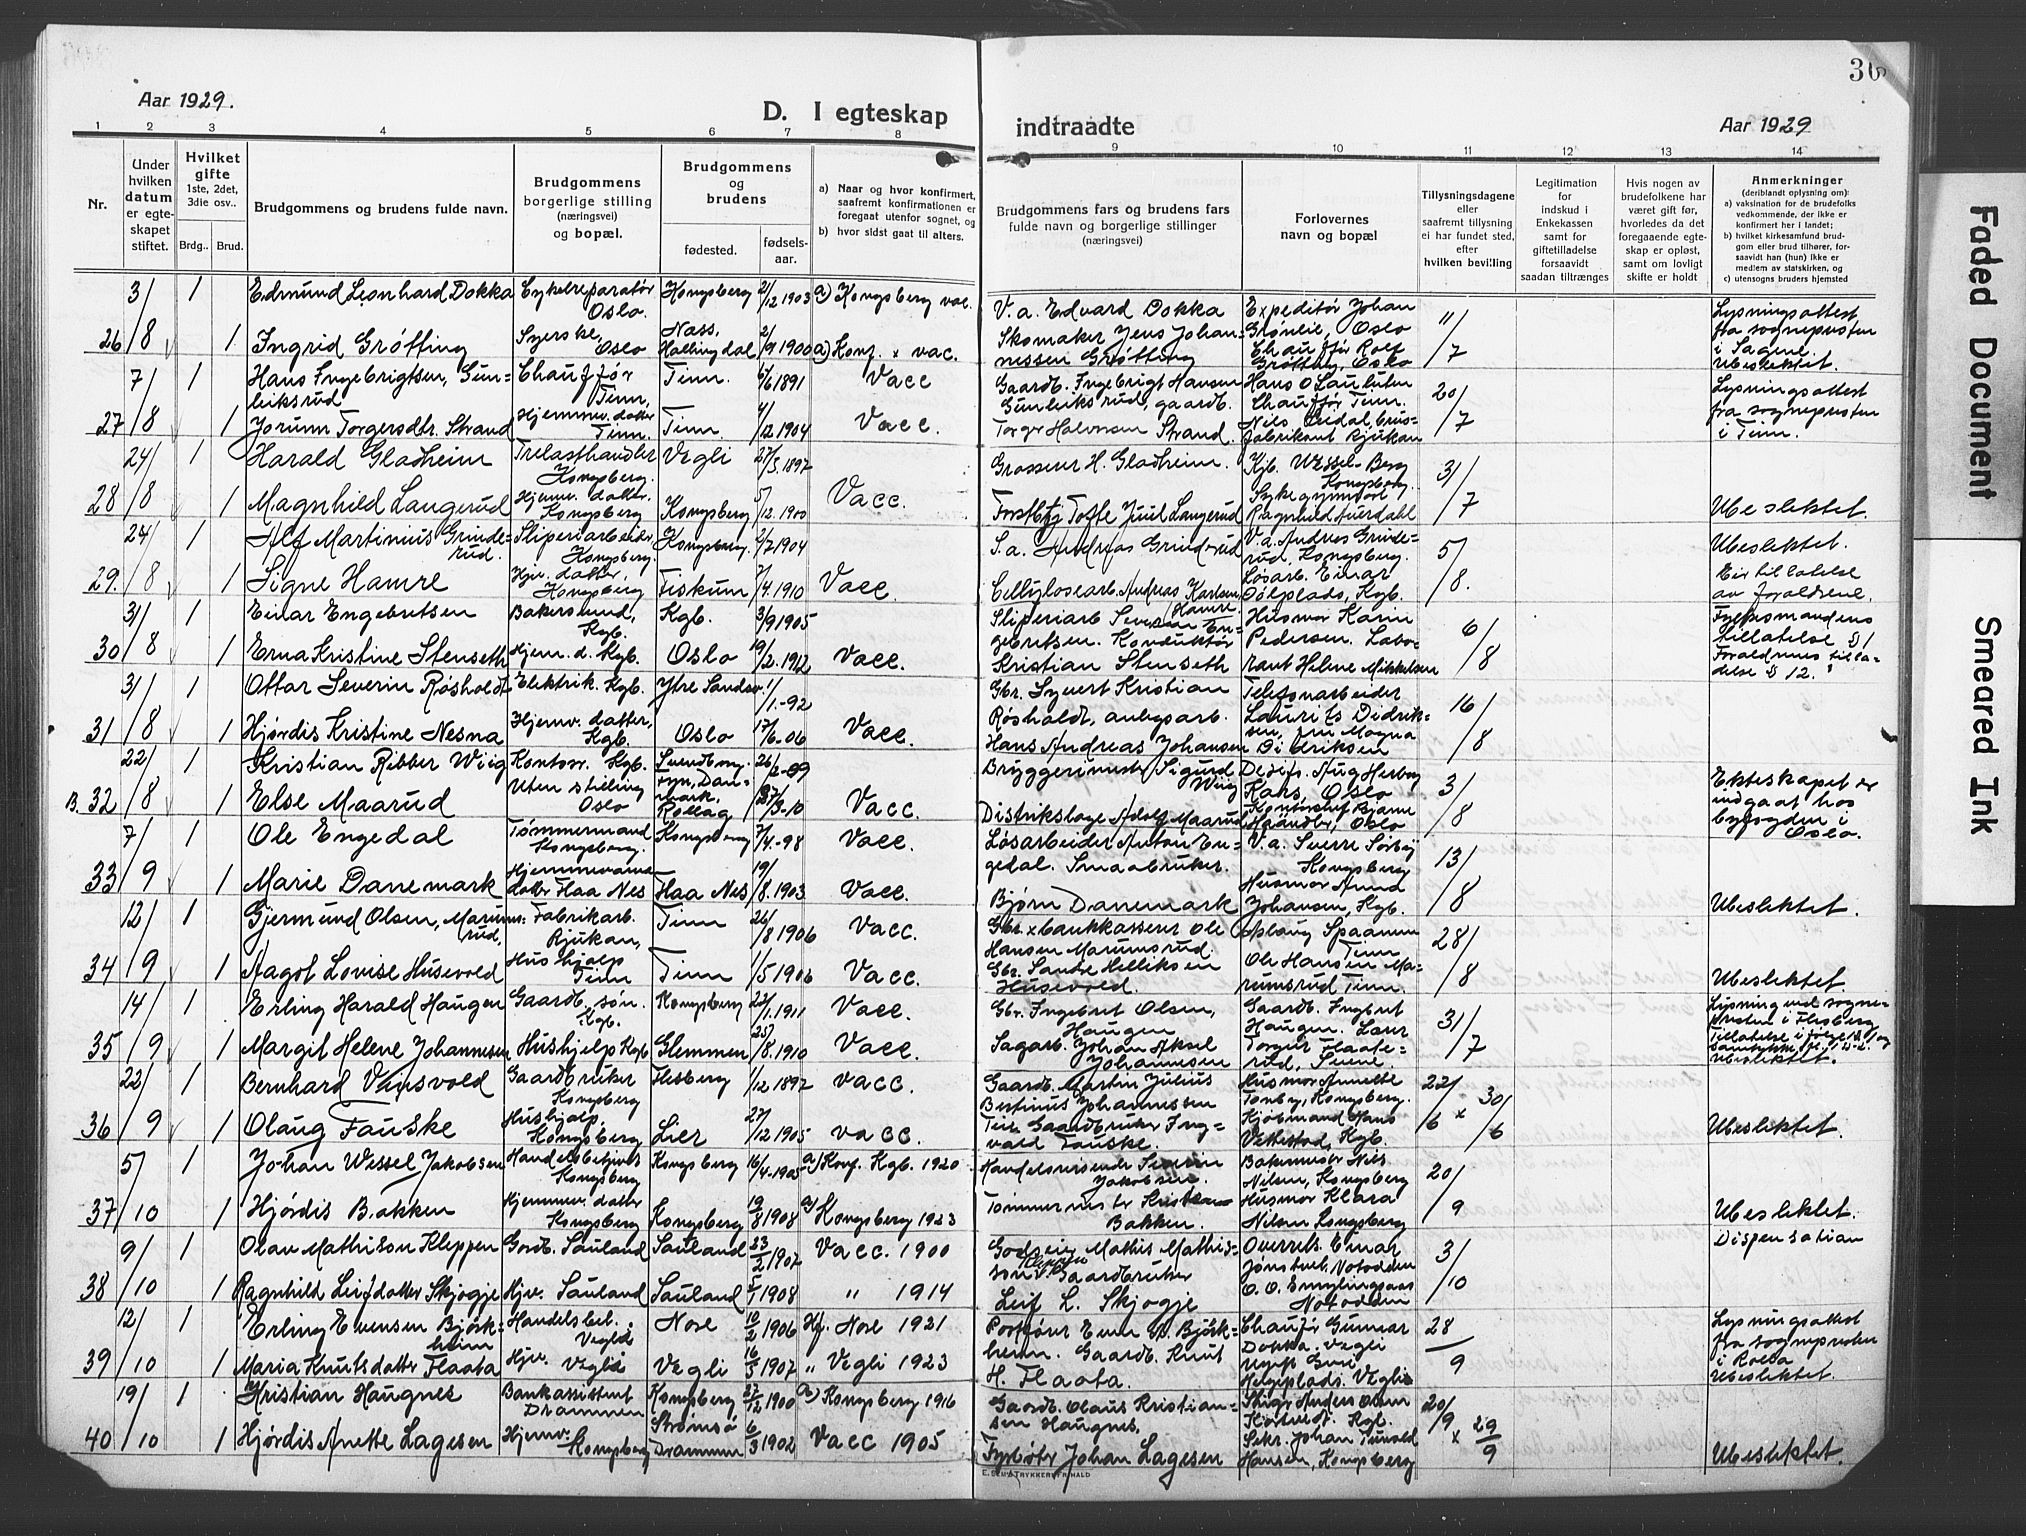 36
Aar 1929.
D. I egteskap
indtraadte
Aar 1929
1 2 3 4 5 6 7 8
9 10 11 12 13 14
Nr.
Under hvilken datum er egte-skapet stiftet.
Hvilket gifte
1ste, 2det, 3die osv..
Brdg.. Brud.
Brudgommens og brudens fulde navn.
Brudgommens borgerlige stilling (næringsvei) og bopæl.
Brudgommens og brudens
fødested.
fødsels-aar.
a) Naar og hvor konfirmert, saafremt konfirmationen er foregaat utenfor sognet, og
b) hvor sidst gaat til alters.
Brudgommens fars og brudens fars fulde navn og borgerlige stillinger (næringsvei)
Forlovernes navn og bopæl
Tillysningsdagene eller saafremt tillysning ei har fundet sted, efter hvilken bevilling
Legitimation for indskud i Enkekassen samt for giftetilladelse forsaavidt saadan tiltrænges
Hvis nogen av brudefolkene har været gift før, hvorledes da det foregaaende egte-skap er opløst, samt om lovligt skifte er holdt
Anmerkninger
(deriblandt oplysning om):
a) vaksination for de brudefolks vedkommende, der ikke er konfirmert her i landet;
b) hvilket kirkesamfund brud-gom eller brud tilhører, for-saavidt han (hun) ikke er medlem av statskirken, og
c) utensogns bruders hjemsted
26 3/8 1 Edmund Leonhard Dokka Cykelreparatør Oslo. Kongsberg 2/12 1903 a) Kongsberg vac.
V.a. Edvard Dokka Expeditør Johan Grøneie, Oslo 11/7 Lysningsattest fra sognepresten i Sagene. Ubeslektet.
1 Ingrid Grøtting Syerske, Oslo Nass, Hallingdal 2/9 1900 a) Konf. x vac.
Skomaker Jens Johan-nessen Grøtting Chauffør Rolf Grøtting, Oslo
27 7/8 1 Hans Ingebrigtsen, Gun-leiksrud Chauffør Tinn, Tinn. 6/6 1891 Vacc
Gaardb. Ingebrigt Hansen Gunleiksrud, gaardb. Chauffør Tinn. 20/7 Lysningsattest fra sognepresten i Tinn.
1 Jorunn Torgersdtr. Strand Hjemmev. datter Tinn. Tinn. 4/12 1904 Vacc.
Torger Halvorsen Strand. fabrikant Rjukan
28 24/8 1 Harald Gladheim Trelasthandler Kongsberg. Vegli 27/5 1897
Grosserer H. Gladheim. Kjb. Wessel-Berg Kongsberg. 31/7
1 Magnhild Langerud Hjemv. datter. Kongsberg Kongsberg 5/12 1900 Vacc.
Tofte Juul Langerud Ragnhild Ubeslektet.
29. 24/8 1 Alf Martinius Grinde-rud. Sliperiarbeider Kongsberg. Kongsberg. 2/7 1904
S.a. Andreas Grinderud V.a. Andreas Grinde-rud, Kongsberg. 5/8. Ubeslektet.
1 Signe Hamre Hjv. datter, Kongsberg Fiskum 7/4. 1910 Vacc.
Cellylosearb. Andreas Karlsen Hamre. Løsarb. Einar Kgb. av foraldrene.
30 31/8 1 Einar Engebretsen Bakersvend, Kgb. Kgb. 3/9 1905
Sliperiarb Severin En-gebretsen. Husmor Karin Pedersen. 6/8 Fylkesmandens tillatelse §1
1 Erna Kristine Stenseth Hjem. d. Kgb. Oslo 19/2. 1912 Vacc.
Konduktør Kristian Stenseth Labo-rant Helene Mikkelsen Foraldrenes tilla-delse § 12.
31 31/8 1 Ottar Severin Røsholdt Elektrik. Kgb. Ytre Sandsv. 1/1.-92
Gbr. Syvert Kristian Røsholdt, anlegsarb. Telefonarbeider Laurits Didrik-sen, 16/8
1 Hjørdis Kristine Nesna Hjemv. datter, Kgb. Oslo 17/6-06 Vacc.
Hans Andreas Johansen Magna Didriksen
B. 32 22/8 1 Kristian Ribber Wiig Kontor. Kgb. Svendborg. Fyn, Dan-mark. 26/2-09
Bryggerimestr Sigurd Wiig Oslo 3/8 Ekteskapet er indgaat hos byfogden i Oslo.
1 Else Maarud Uten stilling Oslo Rollag /3-10 Vacc.
Distrikslæge Adolf Maarud Kontorchef Bjarne Oslo
33 7/9 1 Ole Engedal Tømmermand Kongsberg. Kongsberg 7/4.-98 Vacc.
Løsarbeider Anton En-gedal. Smaabruker. V.a. Sverre Sørby Kongsberg 13/8
1 Marie Danemark Hjemmeværende datter Flaa Nes Flaa Nes 19/8. 1903 Vacc.
Bjørn Danemark Husmor Johansen, Kgb. Ubeslektet.
34 12/9 1 Gjermund Olsen, Marums-rud, Fabrikarb. Rjukan, Tinn 26/8 1906 Vacc.
Gbr. x bankkasserer Ole Hansen Marumsrud. Aslaug Spaanem Tinn 28/8
1 Aagot Lovise Husevold Hushjælp Tinn Tinn 1/5 1906 Vacc.
Gbr. Sandre Helliksen Husevold. Ole Hansen Ma-rumsrud Tinn. Ubeslektet.
35 14/9 1 Erling Harald Haugen Gaardb. søn. Kgb. Kongsberg 22/1. 1911 Vacc.
Gbr. Ingebret Olsen, Haugen Gaardb. Ingbret Haugen. 31/7 Lysning ved sogne-presten i Flesberg
1 Margit Helene Johannesen Hushjelp Kgb Glemmen 25/8. 1910 Vacc.
Sagarb. Johan Aksel Johannesen Torger Flaate-rud, Svene Ubeslektet.
36 22/9 1 Bernhard Vansvold Gaardbruker Kongsberg Flesberg 1/12 1897 Vacc.
Gaardb. Martin Julius Bertinius Johannessen Husmor Annette Kongsberg. 22/6 x 30/6
1 Olaug Fauske Hushjælp, Kongsberg Lier 27/12 1905 vacc.
Gaardbruker Ing-vald Fauske. Kjøbmand Hans Vettestad, Kgb. Ubeslektet.
37 5/10 1 Johan Wessel Jakobsen Handelsbetjent Kongsberg Kongsberg 16/4. 1905 a) Konf. Kgb. 1920
Handelsreisende Severin Jakobsen. Bakermester Nils Nilsen, Kongsberg 20/9
1 Hjørdis Bakken Hjemmev. datter Kongsberg Kongsberg 19/8 1908 a) Kongsberg 1923
Tømmermester Kristian Bakken. Husmor Klara Nilsen Kongsberg Ubeslektet.
38 9/10 1 Olav Mathisson Kleppen Gardb. Sauland Sauland 23/2 1907 Vacc. 1900
Godseier Mathis Mathis-son Kleppen Overrets. Einar Notodden 3/10 Dispensatian
1 Ragnhild Leifdatter Skjogje Hjv. Sauland Sauland 5/1 1908 " 1914
Gaardbruker Leif L. Skjogje O.O. Notodden
39 12/10 1 Erling Evensen Bjørk-heim Handelsbet. Veglie Nore 10/2 1906 Kf. Nore 1921
Postfører Even Bjørk-heim. Chaufør Gunnar Dokka. Vegli 28/9 Lysningsattest fra sognepresten i Rolla Ubeslektet.
1 Maria Knutsdatter Flaata Hjv. Veglie Vegli 16/3 1907 " Vegli 1923
Gaardb. Knut H. Flaata. Helgeplads. Vegli
40 19/10 1 Kristian Haugnes Bankassistent Drammen Kongsberg 27/12 1900 a) Kongsberg 1916
Gaardb. Olaus Kristian-sen Haugnes. Anders Olsen Kgb. 20/9 x 29/9
1 Hjørdis Anette Lagesen Hjemv. Kongsberg Strømsø Drammen 6/3 1902 Vacc 1905
Fyrbøter Johan Lagesen Sekr. Johan Hansen, Kongsberg Ubeslektet.
E. SEM A TRYKKERI FR HALD
Faded Document
Smeared Ink